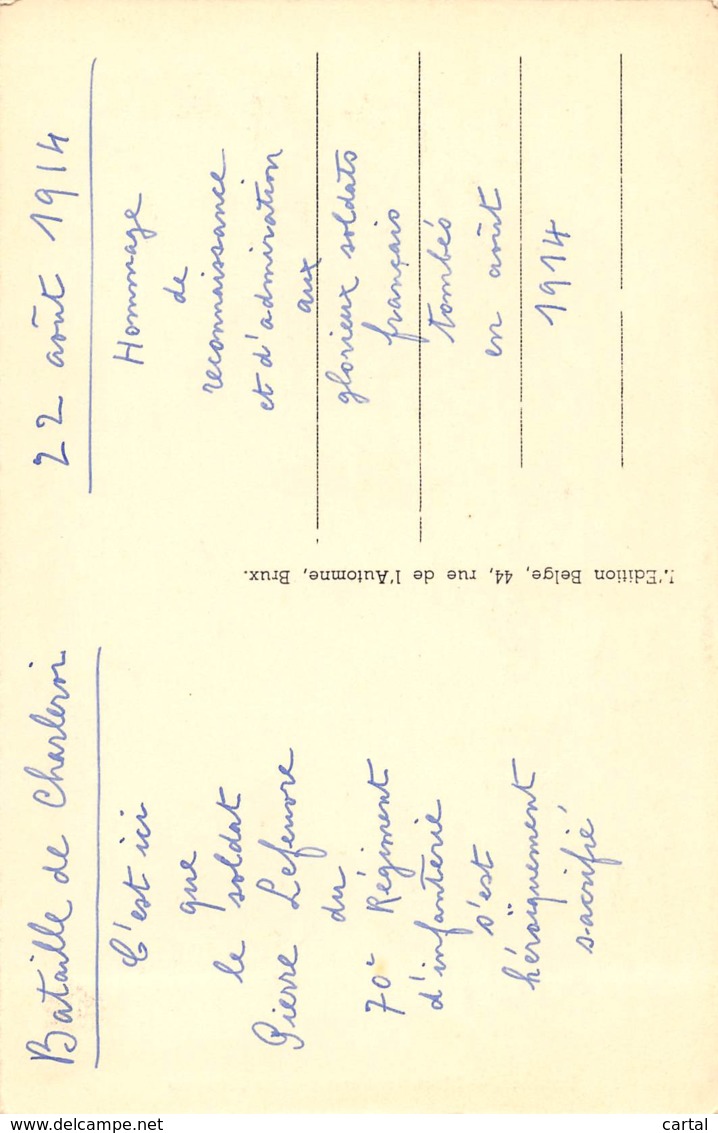 Bataille de Charleroi
C'est ici
que
le soldat
Pierre Lefeuvre
du
70e Régiment
d'infanterie
s'est
héroïquement
sacrifié
22 août 1914
Hommage
de
reconnaissance
et d'admiration
aux
glorieux soldats
français
tombés
en août
1914
L'Edition Belge, 44, rue de l'Automne, Brux.
www.delcampe.net
cartal